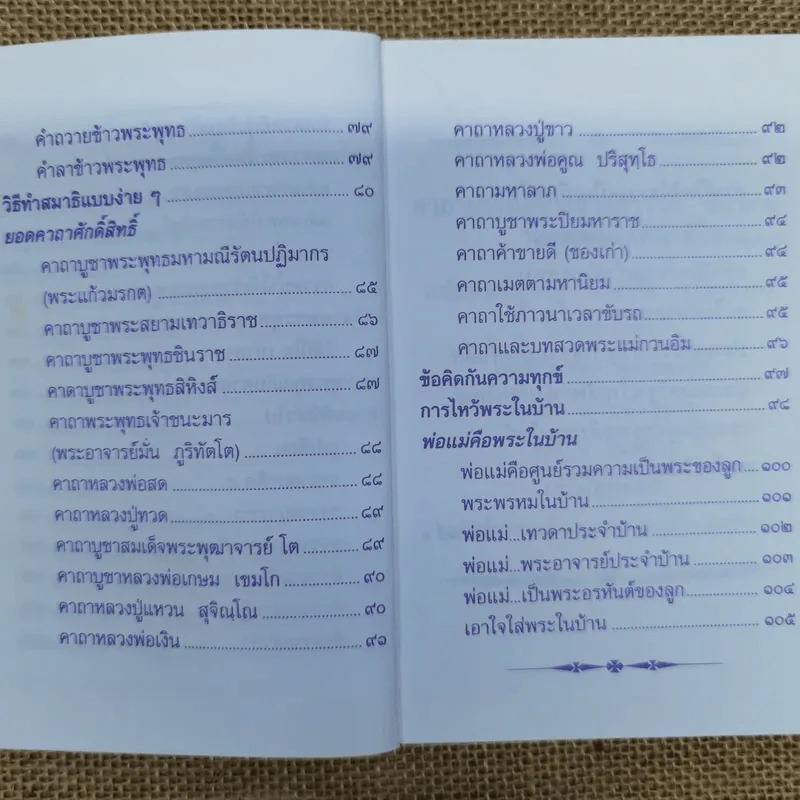 คำถวายข้าวพระพุทธ ........................ ๗๙
คำลาข้าวพระพุทธ ........................ ๗๙
วิธีทำสมาธิแบบง่าย ๆ ........................ ๘๐
ยอดคาถาศักดิ์สิทธิ์
คาถาบูชาพระพุทธมหามณีรัตนปฏิมากร
(พระแก้วมรกต) ........................ ๘๕
คาถาบูชาพระสยามเทวาธิราช ........................ ๘๖
คาถาบูชาพระพุทธชินราช ........................ ๘๗
คาถาบูชาพระพุทธสิหิงส์ ........................ ๘๗
คาถาพระพุทธเจ้าชนะมาร
(พระอาจารย์มั่น ภูริทัตโต) ........................ ๘๘
คาถาหลวงพ่อสด ........................ ๘๘
คาถาหลวงปู่ทวด ........................ ๘๙
คาถาบูชาสมเด็จพระพุฒาจารย์ โต ........................ ๘๙
คาถาบูชาหลวงพ่อเกษม เขมโก ........................ ๙๐
คาถาหลวงปู่แหวน สุจิณฺโณ ........................ ๙๐
คาถาหลวงพ่อเงิน ........................ ๙๑
คาถาหลวงปู่ขาว ........................ ๙๒
คาถาหลวงพ่อคูณ ปริสุทฺโธ ........................ ๙๒
คาถามหาลาภ ........................ ๙๓
คาถาบูชาพระปิยมหาราช ........................ ๙๔
คาถาค้าขายดี (ของเก่า) ........................ ๙๔
คาถาเมตตามหานิยม ........................ ๙๕
คาถาใช้ภาวนาเวลาขับรถ ........................ ๙๕
คาถาและบทสวดพระแม่กวนอิม ........................ ๙๖
ข้อคิดกันความทุกข์ ........................ ๙๗
การไหว้พระในบ้าน ........................ ๙๘
พ่อแม่คือพระในบ้าน
พ่อแม่คือศูนย์รวมความเป็นพระของลูก .... ๑๐๐
พระพรหมในบ้าน ........................ ๑๐๑
พ่อแม่...เทวดาประจำบ้าน ........................ ๑๐๒
พ่อแม่...พระอาจารย์ประจำบ้าน ........................ ๑๐๓
พ่อแม่...เป็นพระอรหันต์ของลูก ........................ ๑๐๔
เอาใจใส่พระในบ้าน ........................ ๑๐๕